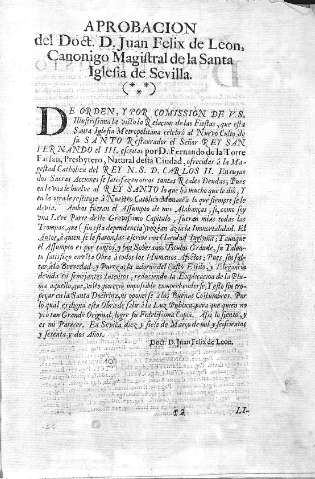 APROBACION
del Doct. D. Juan Felix de Leon,
Canonigo Magistral de la Santa
Iglesia de Sevilla.
DE ORDEN, Y POR COMISSION DE V.S.
Illustrissima he visto la Relacion de las Fiestas, que esta
Santa Iglesia Metropolitana celebrò al Nuevo Culto de
su SANTO Restaurador el Señor REY SAN
FERNANDO el III, escritas por D. Fernando de la Torre
Farfan, Presbytero, Natural desta Ciudad, ofrecidas à la Ma-
gestad Catholica del REY N.S. D. CARLOS II. En cuyas
dos Sacras Acciones se satisfazen tantas Reales Deudas, Pues
en la una le buelve al REY SANTO lo que ha mucho que le diò, Y
en la otra le restituye à Nuestro Catholico Monarca lo que siempre se le
devia. Ambas fueran el Assumpto de mis Alabanças, si, como soy
una Leve Parte deste Gravissimo Capitulo, fueran mias todas las
Trompas, que
Autor, à quien se le fiaron, las escrive con Claridad Ingeniosa; Y aunque
el Assumpto es tan
to satisfizo con esta Obra à todos los Humanos Afectos; Pues, sin fal-
tar à la Brevedad, y Pureza,
devida en semejantes Intentos, reduciendo la Explicacion de la Plu-
ma aquello, que, visto, pareciò impossible comprehenderse, Y esto sin tro-
peçar en la Santa Doctrina, ni oponerse à las Buenas Costumbres. Por
lo qual es digna esta Obra de salir à la Luz Publica, para que quien no
viò tan Grande Original, logre su Fidelissima Copia. Assi lo siento, y
es mi Parecer. En Sevilla diez y siete de Março de mil y seiscientos
y setenta y dos Años.
Doct. D. Juan Felix de Leon.
¶ 2 LI-